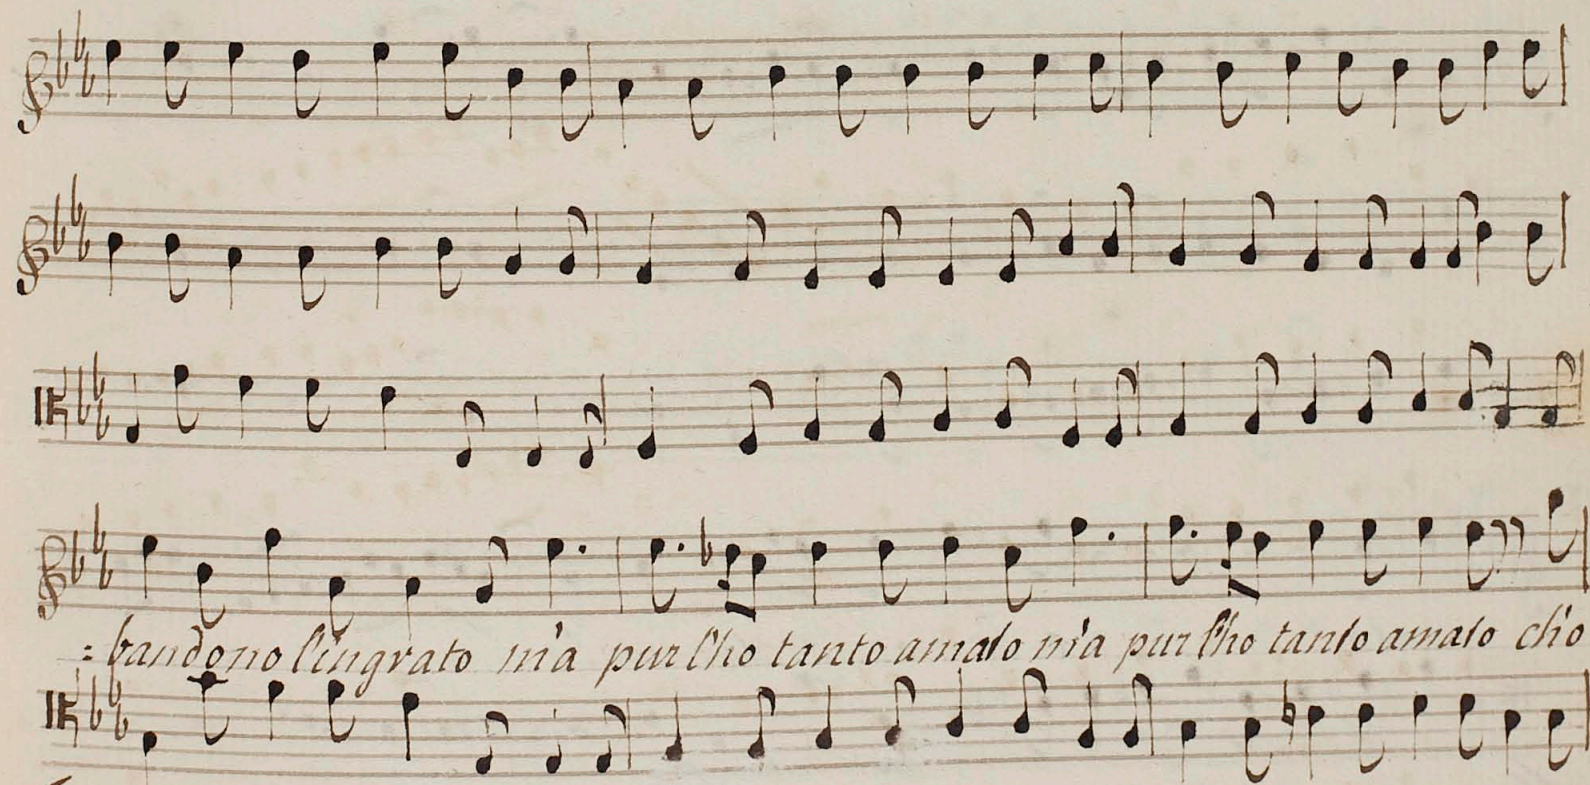 =bandono l'ingrato m'a pur l'ho tanto amato m'a pur l'ho tanto amato ch'io